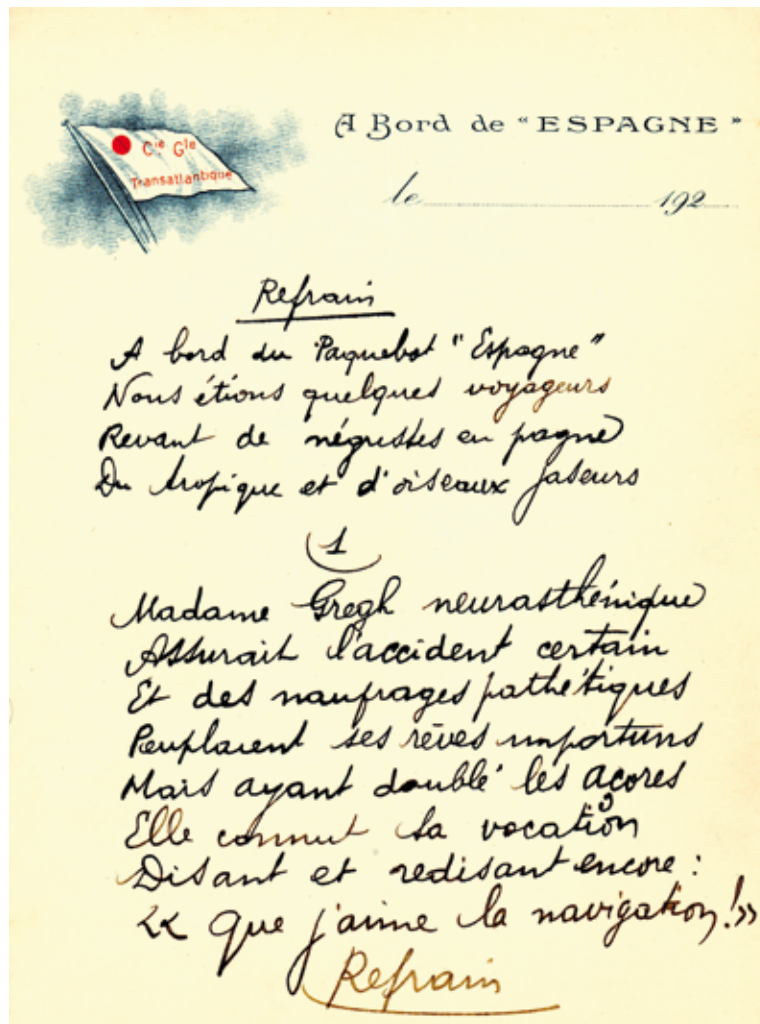 Cie Gle
Transatlantique
A Bord de "ESPAGNE"
le 192
Refrain
A bord du Paquebot "Espagne"
Nous étions quelques voyageurs
Revant de négustes en pagne
Du tropique et d'oiseaux jaseurs
1
Madame Gregh neurasthénique
Assurait l'accident certain
Et des naufrages pathétiques
Peuplaient ses rêves importuns
Mais ayant doublé les açores
Elle connut sa vocation
Disant et redisant encore :
« Que j'aime la navigation ! »
Refrain